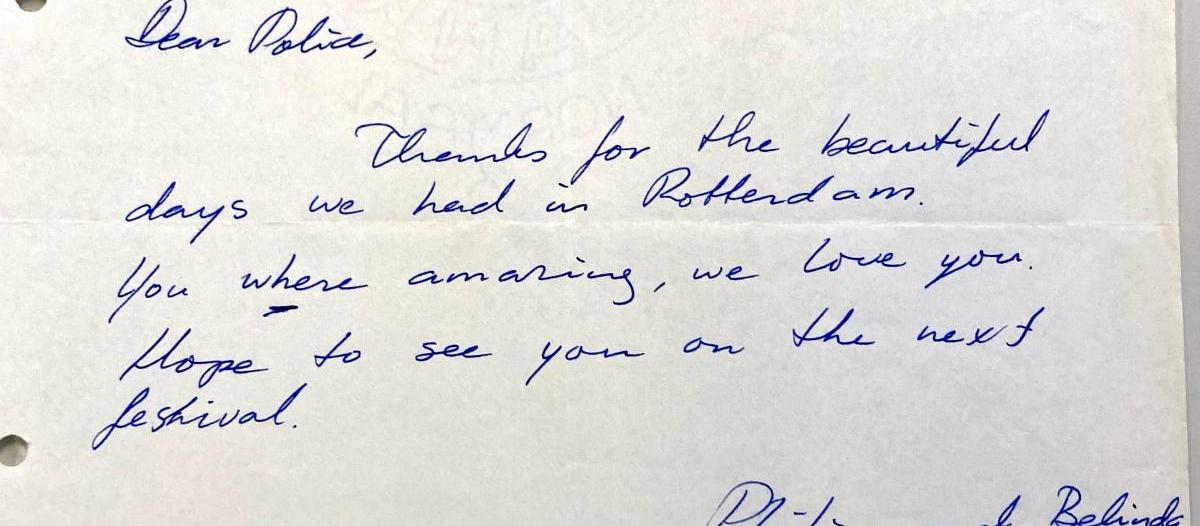 Dear Police,
Thanks for the beautiful
days we had in Rotterdam.
You where amazing, we love you.
Hope to see you on the next
festival.
Belinda